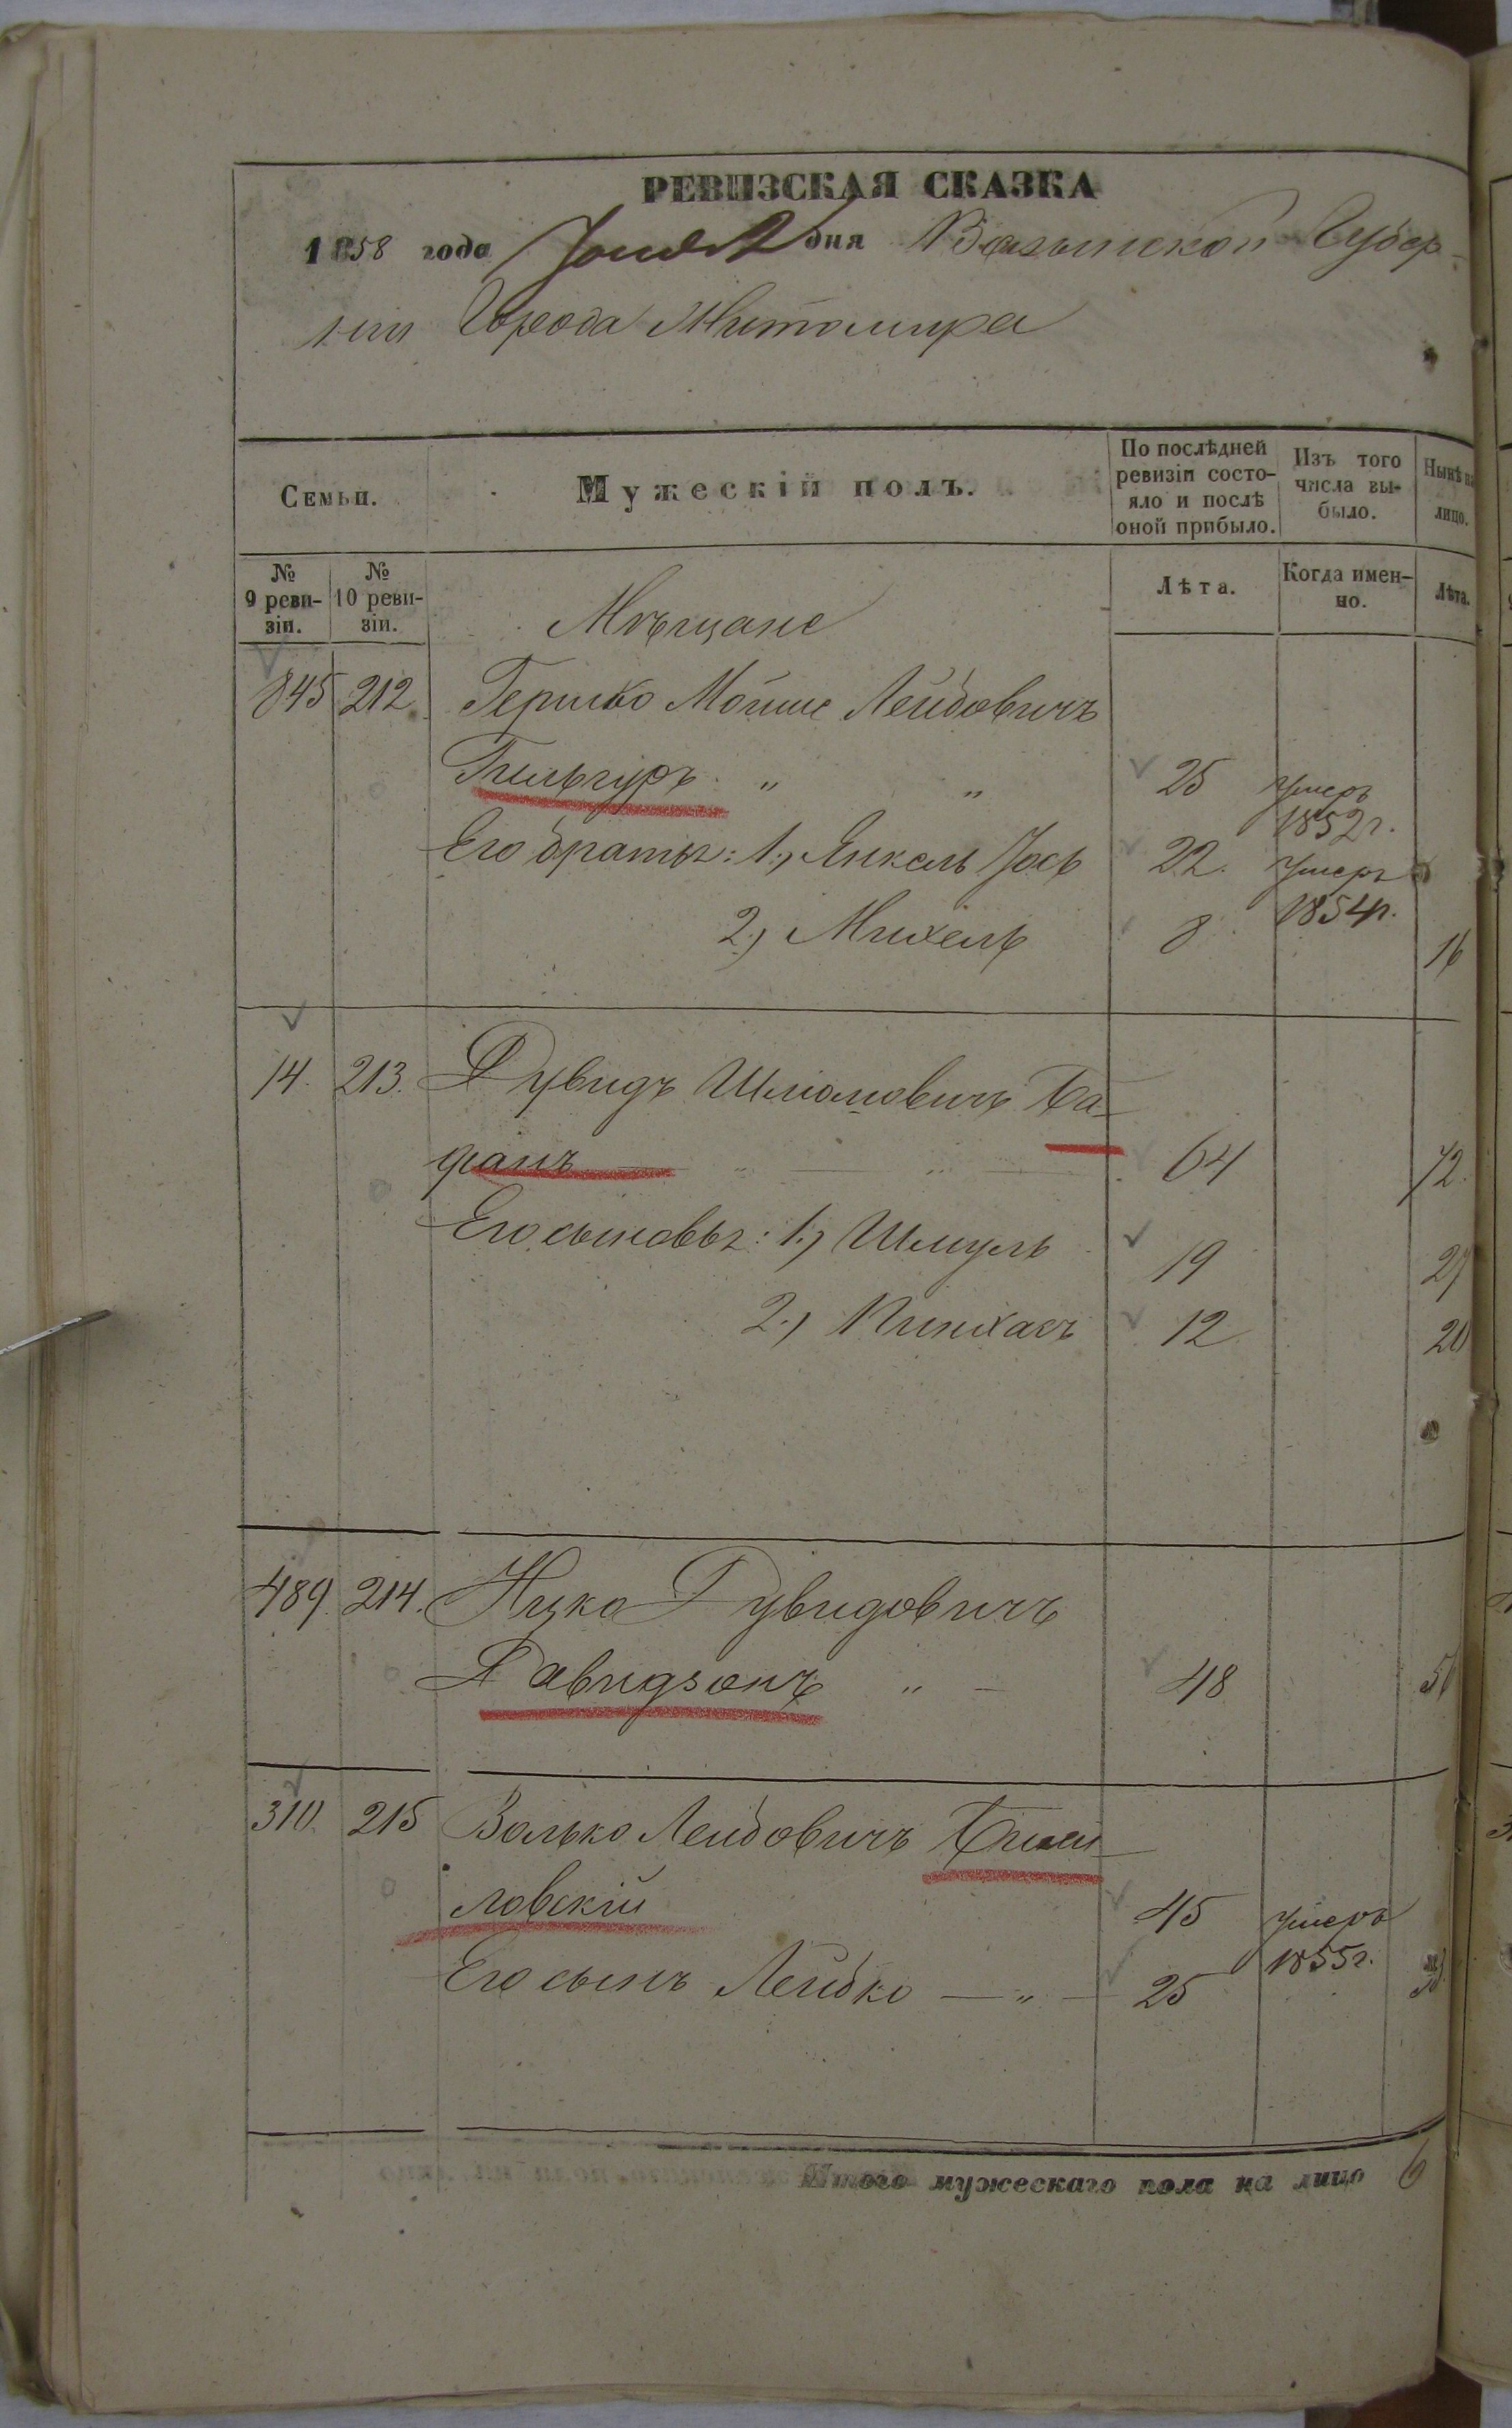 РЕВИЗСКАЯ СКАЗКА
1858 года дня Волынской Губер-
нии Города Житомира
Семьи.
Мужескій полъ.
По послѣдней ревизіи состо-
яло и послѣ оной прибыло.
Изъ того числа вы-
было.
Нынѣ на лицо.
№ 9 реви-
зіи.
№ 10 реви-
зіи.
Лѣта.
Когда имен-
но.
Лѣта.
Мѣщане
845 212 Гершко Мойше Лейбовичъ
" " 25 умеръ 1852 г.
Его братья: 1.) Янкель Йось 22. умеръ 1854 г.
2.) Михель 8 16
14. 213. Дувидъ Шліомовичъ Ба-
фанъ " " 64 72.
Его сыновья: 1.) Шмуль 19 27
2.) Пинхасъ 12 20
489. 214. Ицко Дувидовичъ
Давидзонъ " 48 56
310. 215 Волько Лейбовичъ
ловскій 45 умеръ 1855 г.
Его сынъ Лейбко — " — 25
Итого мужескаго пола на лицо 6